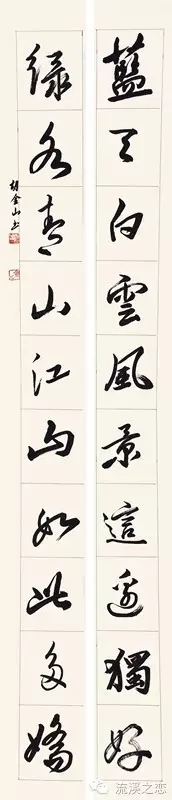 藍天白雲風景這邊獨好
绿水青山江山如此多嬌
胡金山书
流溪之恋